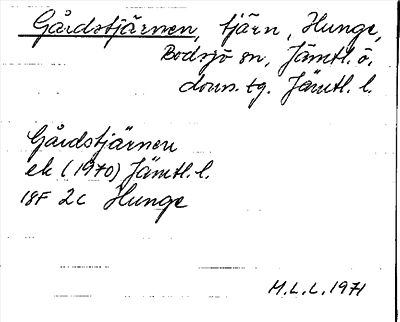 Gårdstjärnen, tjärn, Hunge,
Bodsjö sn, Jämtl. ö.
doms. tg. Jämtl. l.
Gårdstjärnen
ek (1970) Jämtl. l.
18F 2c Hunge
M.L.L. 1971